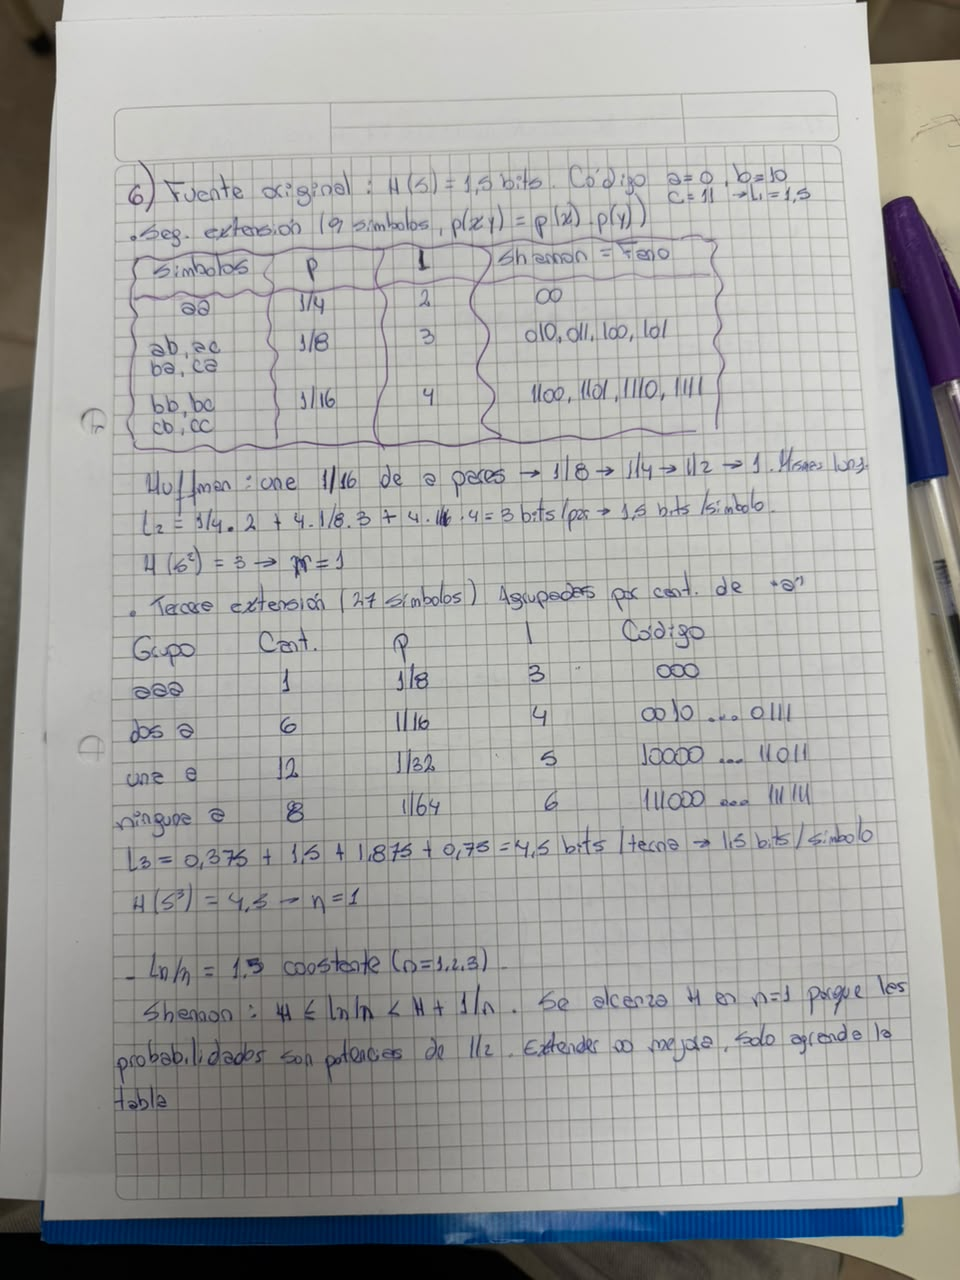 6) Fuente original : H(S) = 1,5 bits. Código a=0, b=10
c=11 → L₁=1,5
• Seg. extensión (9 simbolos, p(xy) = p(x) . p(y))
simbolos P l Shannon = Fano
aa 1/4 2 00
ab, ac 1/8 3 010, 011, 100, 101
ba, ca
bb, bc 1/16 4 1100, 1101, 1110, 1111
cb, cc
Huffman : une 1/16 de a pares → 1/8 → 1/4 → 1/2 → 1. Mismas long.
L₂ = 1/4 . 2 + 4 . 1/8 . 3 + 4 . 16 . 4 = 3 bits/par → 1,5 bits/simbolo.
H(s²) = 3 → n = 1
• Tercera extensión (27 simbolos) Agrupados por cant. de "a"
Grupo Cant. P l Código
aaa 1 1/8 3 000
dos a 6 1/16 4 0010 ... 0111
una a 12 1/32 5 10000 ... 11011
ninguna a 8 1/64 6 111000 ... 111111
L3 = 0,375 + 1,5 + 1,875 + 0,75 = 4,5 bits/terna → 1,5 bits/simbolo
H(S³) = 4,5 → n = 1
- Ln/n = 1,5 constante (n=1,2,3)
Shannon : H ≤ Ln/n < H + 1/n . Se alcanza H en n=1 porque las
probabilidades son potencias de 1/2. Extender no mejora, solo agranda la
tabla